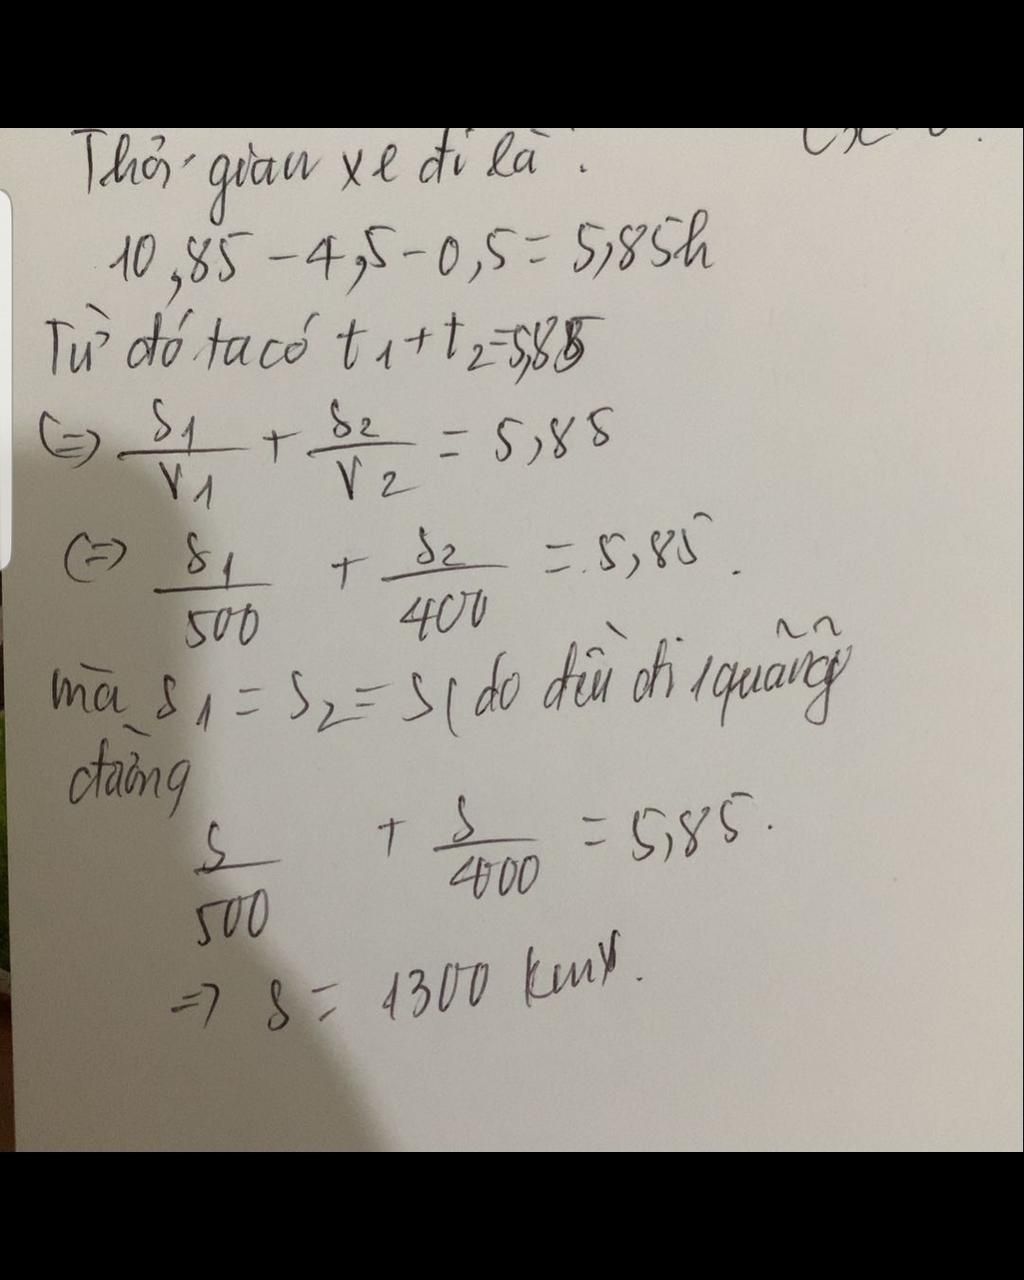 Thời gian xe đi là :
10,85 - 4,5 - 0,5 = 5,85h
Từ đó ta có t1 + t2 = 5,85
(=) S1/V1 + S2/V2 = 5,85
(=) S1/500 + S2/400 = 5,85.
mà S1 = S2 = S ( do đều đi 1 quãng
đường
S/500 + S/400 = 5,85.
=> S = 1300 km